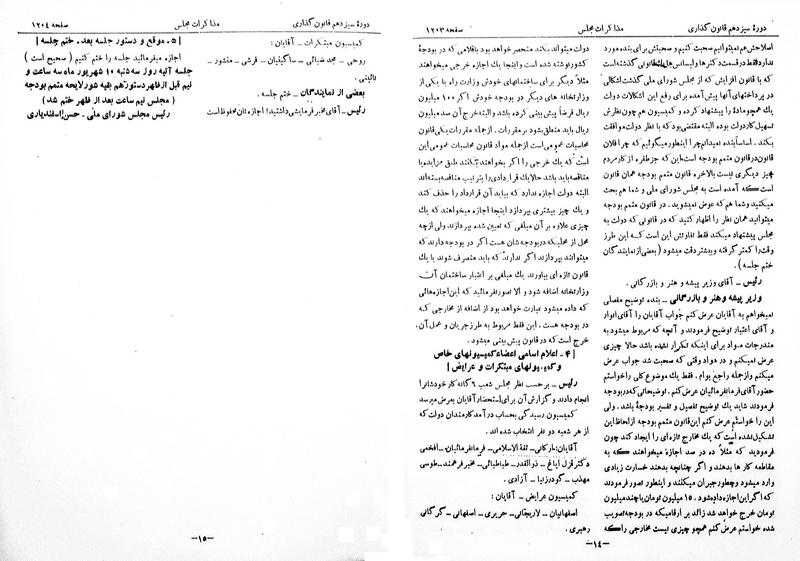 دورهٔ سیزدهم قانون گذاری
مذاکرات مجلس
صفحه ۱۲۰۳
اصلاحش هم نمیتوانیم صحبت کنیم و صحبتش برای بنده مورد
ندارد فقط در قسمت دکترها و لیسانس‌های
که با قانون افزایش که از مجلس شورای ملی گذشت اشکالی
در پرداختهای آنها پیش آمده برای رفع این اشکالات دولت
یک همچو مادهٔ را پیشنهاد کرده و کمیسیون هم چون نظرش
تسهیل کار دولت بوده البته مقتضی بود که با نظر دولت موافقت
بکند . اساساً بنده نمیدانم چرا اینطور میگوئیم که چرا فلان
قانون در قانون متمم بودجه است این که جز طفره از کار مردم
چیز دیگری نیست بالاخره قانون متمم بودجه همان قانون
است که آمده است به مجلس شورای ملی و شما هم بحث
میکنید و شما هم که عوض نمیشوید . در قانون متمم بودجه
میتوانید همان نظر را اظهار کنید که در قانونی که دولت به
مجلس پیشنهاد میکند فقط تفاوتش این است که این طرز
وقت را کمتر گرفته و بیشتر دقت میشود (بعضی از نمایندگان
ختم جلسه) .
رئیس ـ آقای وزیر پیشه و هنر و بازرگانی .
وزیر پیشه و هنر و بازرگانی ـ بنده توضیح مفصلی
نمیخواهم به آقایان عرض کنم جواب آقایان را آقای انوار
و آقای اعتبار توضیح فرمودند و آنچه که مربوط میشود به
مندرجات مواد برای اینکه تکرار نشده باشد حالا چیزی
عرض نمیکنم و در مواد وقتی که صحبت شد جواب عرض
میکنم و از جمله راجع بوام . فقط یک موضوع کلی را خواستم
حضور آقای فرمانفرمائیان عرض کنم . توضیحاتی که در بودجه
فرمودند شاید یک توضیح تفصیل و تفسیر بودجهٔ باشد . ولی
این را خواستم عرض کنم این قانون متمم بودجه از لحاظ این
تشکیل نشده است که یک مخارج تازه‌ای را ایجاد کند چون
فرمودید که مثلاً ده در صد اجازه میخواهند که به
مقاطعه کار ها بدهند و اگر چنانچه بدهند خسارت زیادی
وارد میشود و چطور جبران میکنند و اینطور تصور فرمودند
که اگر این اجازه داده شود . ۱۵ میلیون تومان یا چند میلیون
تومان خرج خواهد شد زائد بر ارقامیکه در بودجه تصویب
شده خواستم عرض کنم همچو چیزی نیست مخارجی را که
دولت میتواند بکند منحصر خواهد بود باقلامی که در بودجهٔ
کشور نوشته شده است و اینجا یک اجازه خرجی میخواهند
مثلاً دیگر برای ساختمانهای خودش وزارت راه یا یکی از
وزارتخانه های دیگر در بودجه خودش اگر ۱۰۰ میلیون
ریال فرضاً پیش بینی کرده باشد و البته خرج آن صد میلیون
ریال باید منطبق بشود بر مقررات . از جمله مقررات یکی قانون
محاسبات عمومی است از جمله مواد قانون محاسبات عمومی این
است که یک خرجی را اگر بخواهند بکنند طبق مزایده یا
مناقصه باید باشد حالا یک قراردادی را بترتیب مناقصه بسته‌اند
البته دولت اجازه ندارد که بیاید آن قرارداد را حذف کند
و یک چیز بیشتری بپردازد اینجا اجازه میخواهند که یک
چیزی علاوه بر آن مبلغی که تعیین شده بپردازند ولی از چه
محل از محلیکه در بودجه شان هست اگر در بودجه دارند که
میتوانند بپردازند اگر ندارند که باید منصرف شوند یا یک
قانون تازه‌ای بیاورند یک مبلغی بر اعتبار ساختمان آن
وزارتخانه اضافه شود و الا تصور نفرمائید که این اجازه‌هائی
که داده میشود عبارت خواهد بود از اضافه از مخارجی که
در بودجه هست . این فقط مربوط به طرز جریان و عمل آن
خرج است که در قانون پیش بینی میشود .
[ ۴ ـ اعلام اسامی اعضاء کمیسیونهای خاص
و کمیسیونهای مبتکرات و عرایض ]
رئیس ـ بر حسب نظر مجلس شعب ۶ گانه کار خودشان را
انجام دادند و گزارش آن برای استحضار آقایان بعرض میرسد
کمیسیون رسیدگی بحساب درآمد کارمندان دولت که
از هر شعبه دو نفر انتخاب شده اند .
آقایان : نارکانی ـ ثقة الاسلامی ـ فرمانفرمائیان ـ افخمی
دکتر قزل ایاغ ـ ذوالقدر ـ طباطبائی ـ مخبر فرهمند ـ طوسی
مهذب ـ گودرزنیا ـ آزادی .
کمیسیون عرایض ـ آقایان :
اصفهانیان ـ لاریجانی ـ حریری ـ اصفهانی ـ گرگانی
رهبری .
ـ ۱۴ ـ
دورهٔ سیزدهم قانون گذاری
مذاکرات مجلس
صفحه ۱۲۰۴
کمیسیون مبتکرات ـ آقایان :
روحی ـ مجد ضیائی ـ ساگینیان ـ قرشی ـ مفشور ـ
نائینی .
بعضی از نمایندگان ـ ختم جلسه .
رئیس ـ آقای مخبر فرمایشی داشتید ؛ اجازه تان محفوظ است
[ ۵ ـ موقع و دستور جلسه بعد . ختم جلسه ]
اجازه میفرمائید جلسه را ختم کنیم (صحیح است)
جلسه آتیه روز سه شنبه ۱۰ شهریور ماه سه ساعت و
نیم قبل از ظهر دستور هم بقیه شور لایحه متمم بودجه
(مجلس نیم ساعت بعد از ظهر ختم شد)
رئیس مجلس شورای ملی . حسن اسفندیاری
ـ ۱۵ ـ